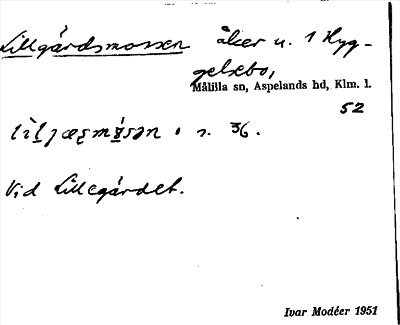 Lillgårdsmossen åker u. 1 Hyg-
gelsebo,
Målilla sn, Aspelands hd, Klm. l.
52
s. 36.
Vid Lillegårdet.
Ivar Modéer 1951